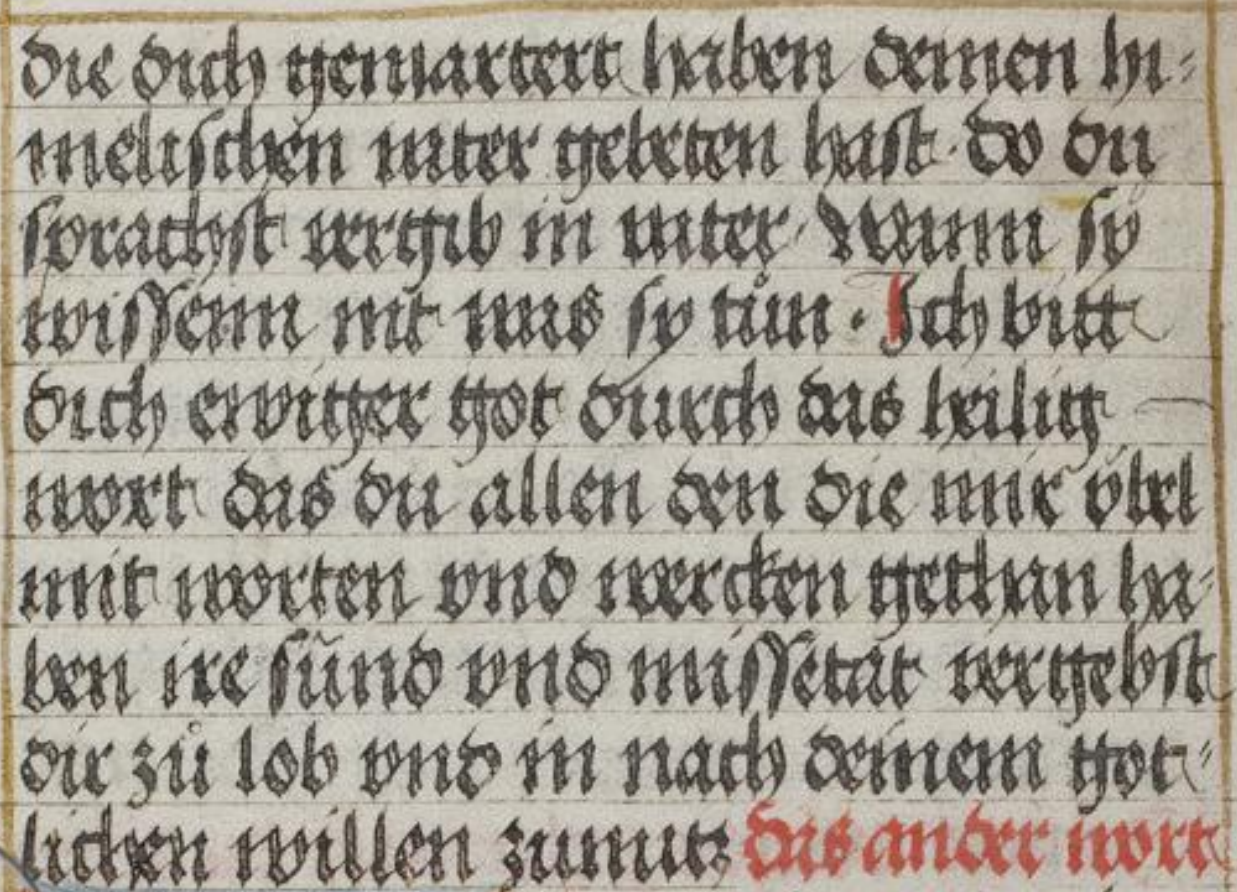 die dich gemartert haben deinen hi-
melischen vater gebeten hast · do du
sprachst vergib in vater · Wann sy
wissenn nit was sy tůn · Ich bitt
dich ewiger got durch das heilig
wort das du allen den die mir ÿbel
mit worten vnd wercken gethan ha-
ben ire sünd vnd missetat vergebst
dir zů lob vnd in nach deinem got-
lichen willen zunutz das ander wort